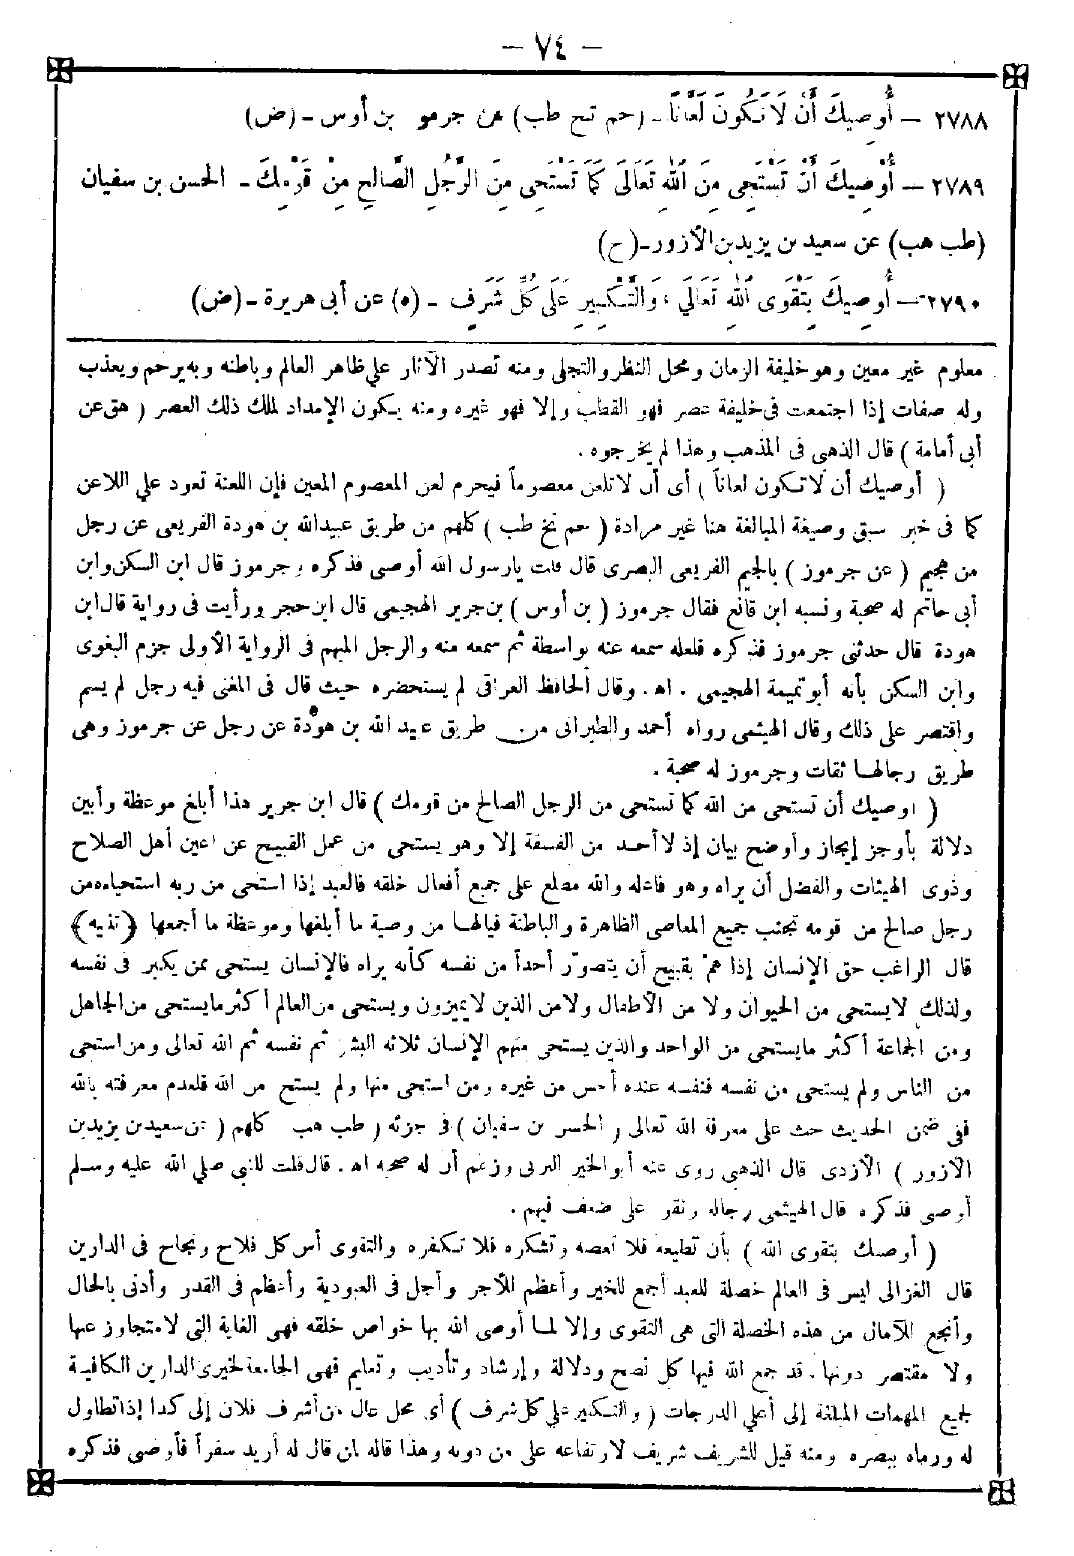 — ٧٤ —
٢٧٨٨ — أُوصِيكَ أَنْ لَا تَكُونَ لَعَّانًا - (حم تخ طب) عن جرموز بن أوس - (ض)
٢٧٨٩ — أُوصِيكَ أَنْ تَسْتَحِىَ مِنَ اللّٰهِ تَعَالَى كَمَا تَسْتَحِى مِنَ الرَّجُلِ الصَّالِحِ مِنْ قَوْمِكَ - الحسن بن سفيان
(طب هب) عن سعيد بن يزيد بن الأزور - (ح)
٢٧٩٠ — أُوصِيكَ بِتَقْوَى اللّٰهِ تَعَالَى ، وَالتَّكْبِيرِ عَلَى كُلِّ شَرَفٍ - (ه) عن أبى هريرة - (ض)
معلوم غير معين وهو خليفة الزمان ومحل النظر والتجلى ومنه تصدر الآثار على ظاهر العالم وباطنه وبه يرحم ويعذب
وله صفات إذا اجتمعت فى خليفة عصر فهو القطب وإلا فهو غيره ومنه يكون الإمداد لملك ذلك العصر ( هق عن
أبى أمامة ) قال الذهبى فى المذهب وهذا لم يخرجوه .
( أوصيك أن لا تكون لعاناً ) أى أن لا تلعن معصوماً فيحرم لعن المعصوم المعين فإن اللعنة تعود على اللاعن
كما فى خبر سبق وصيغة المبالغة هنا غير مرادة ( حم تخ طب ) كلهم من طريق عبيدالله بن هودة الفريعى عن رجل
من هجيم ( عن جرموز ) بالجيم الفريعى البصرى قال قلت يارسول الله أوصنى فذكره وجرموز قال ابن السكن وابن
أبى حاتم له صحبة ونسبه ابن قانع فقال جرموز ( بن أوس ) بن جرير الهجيمى قال ابن حجر ورأيت فى رواية قال ابن
هودة قال حدثنى جرموز فذكره فلعله سمعه عنه بواسطة ثم سمعه منه والرجل المبهم فى الرواية الأولى جزم البغوى
وابن السكن بأنه أبو تميمة الهجيمى . اه . وقال الحافظ العراقى لم يستحضره حيث قال فى المغنى فيه رجل لم يسم
واقتصر على ذلك وقال الهيثمى رواه أحمد والطبرانى من طريق عبيد الله بن هوْدة عن رجل عن جرموز وهى
طريق رجالها ثقات وجرموز له صحبة .
( أوصيك أن تستحى من الله كما تستحى من الرجل الصالح من قومك ) قال ابن جرير هذا أبلغ موعظة وأبين
دلالة بأوجز إيجاز وأوضح بيان إذ لا أحد من الفسقة إلا وهو يستحى من عمل القبيح عن أعين أهل الصلاح
وذوى الهيئات والفضل أن يراه وهو فاعله والله مطلع على جميع أفعال خلقه فالعبد إذا استحى من ربه استحياءه من
رجل صالح من قومه تجنب جميع المعاصى الظاهرة والباطنة فيالها من وصية ما أبلغها وموعظة ما أجمعها ﴿ تنبيه ﴾
قال الراغب حق الإنسان إذا همّ بقبيح أن يتصوّر أحداً من نفسه كأنه يراه فالإنسان يستحى ممن يكبر فى نفسه
ولذلك لا يستحى من الحيوان ولا من الأطفال ولا من الذين لا يميزون ويستحى من العالم أكثر ما يستحى من الجاهل
ومن الجماعة أكثر ما يستحى من الواحد والذين يستحى منهم الإنسان ثلاثة البشر ثم نفسه ثم الله تعالى ومن استحى
من الناس ولم يستحى من نفسه فنفسه عنده أخس من غيره ومن استحى منها ولم يستح من الله فلعدم معرفته بالله
ففى ضمن الحديث حث على معرفة الله تعالى ( الحسن بن سفيان ) فى جزئه ( طب هب كلهم ( عن سعيد بن يزيد بن
الأزور ) الأزدى قال الذهبى روى عنه أبو الخير اليزنى وزعم أن له صحبة اه . قال قلت للنبى صلى الله عليه وسلم
أوصنى فذكره قال الهيثمى رجاله وثقوا على ضعف فيهم .
( أوصيك بتقوى الله ) بأن تطيعه فلا تعصه وتشكره فلا تكفره والتقوى أس كل فلاح ونجاح فى الدارين
قال الغزالى ليس فى العالم خصلة للعبد أجمع للخير وأعظم للأجر وأجل فى العبودية وأعظم فى القدر وأدنى بالحال
وأنجع للآمال من هذه الخصلة التى هى التقوى وإلا لما أوصى الله بها خواص خلقه فهى الغاية التى لا متجاوز عنها
ولا مقتصر دونها . قد جمع الله فيها كل نصح ودلالة وإرشاد وتأديب وتعليم فهى الجامعة لخيرى الدارين الكافية
لجميع المهمات المبلغة إلى أعلى الدرجات ( والتكبير على كل شرف ) أى محل عال من أشرف فلان إلى كذا إذا تطاول
له ورماه ببصره ومنه قيل للشريف شريف لارتفاعه على من دونه وهذا قاله لمن قال له أريد سفراً فأوصنى فذكره